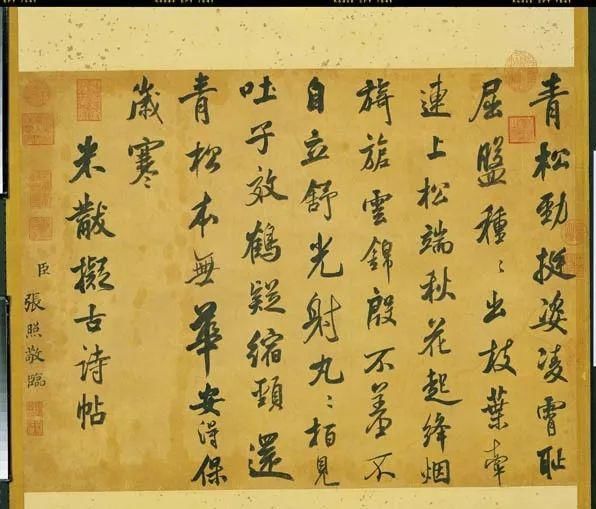 青松勁挺姿凌霄恥
屈盤種〻出枝葉牽
連上松端秋花起絳烟
旖旎雲錦殷不羞不
自立舒光射丸〻栢見
吐子效鶴疑縮頸還
青松本無華安得保
歲寒
米黻擬古詩帖
臣張照敬臨